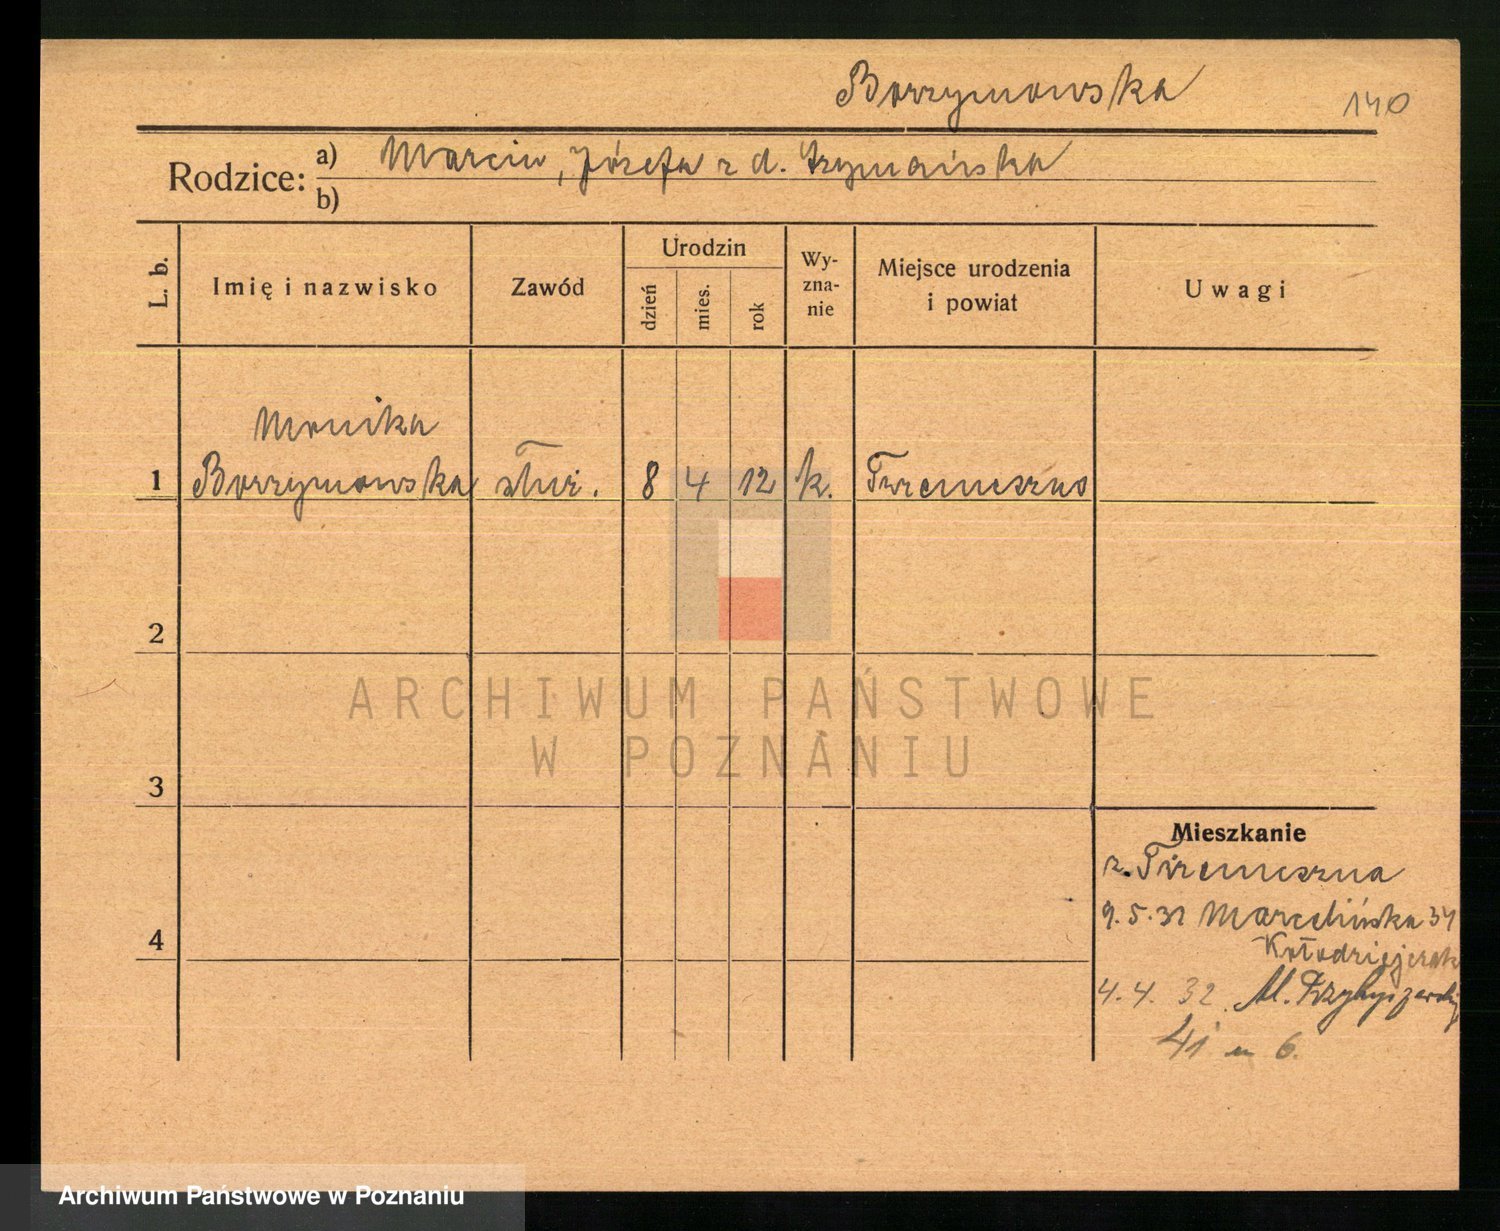 Borzymowska 140
Rodzice: a) Marcin, Józefa z d. Szymańska
b)
L. b. Imię i nazwisko Zawód Urodzin dzień mies. rok Wyznanie Miejsce urodzenia i powiat Uwagi
Monika
1 Borzymowska służ. 8 4 12 k. Trzemeszno
2
ARCHIWUM PAŃSTWOWE
W POZNANIU
3
Mieszkanie
z. Trzemeszna
9.5.31 Marcelińska 34
4 Kołodziejczak
4.4. 32. M. Przybyszewskiej
41 m 6.
Archiwum Państwowe w Poznaniu